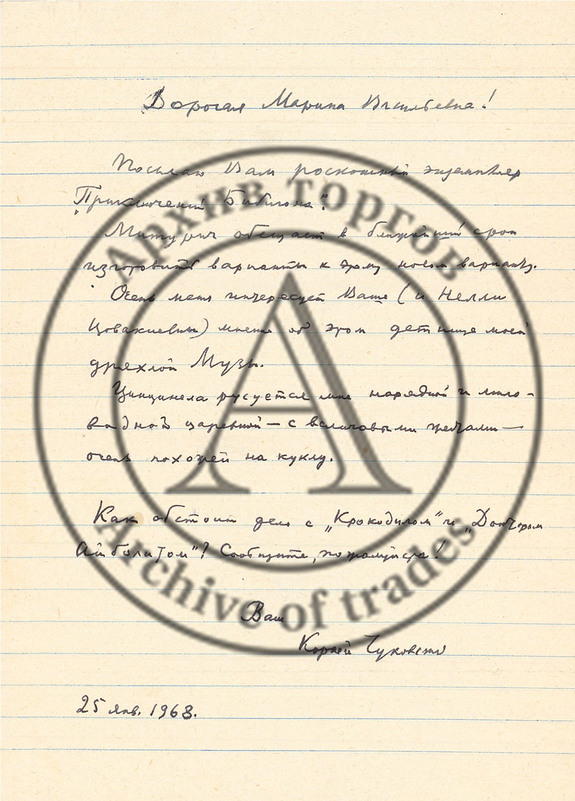 Дорогая Марина Васильевна!
Посылаю Вам роскошный экземпляр
"Приключений Бибигона".
Митурич обещает в ближайший срок
изготовить варианты к этому новому варианту.
Очень меня интересует Ваше (и Нелли
) мнение об этом детище моей
дряхлой Музы.
Цинцинела рисуется мне нарядной и мило-
видной царевной — с
очень похожей на куклу.
Как обстоит дело с „Крокодилом" и „Доктором
Айболитом"? Сообщите, пожалуйста!
Ваш
Корней Чуковский
25 янв. 1968.
Архив торгов
Archive of trades
А